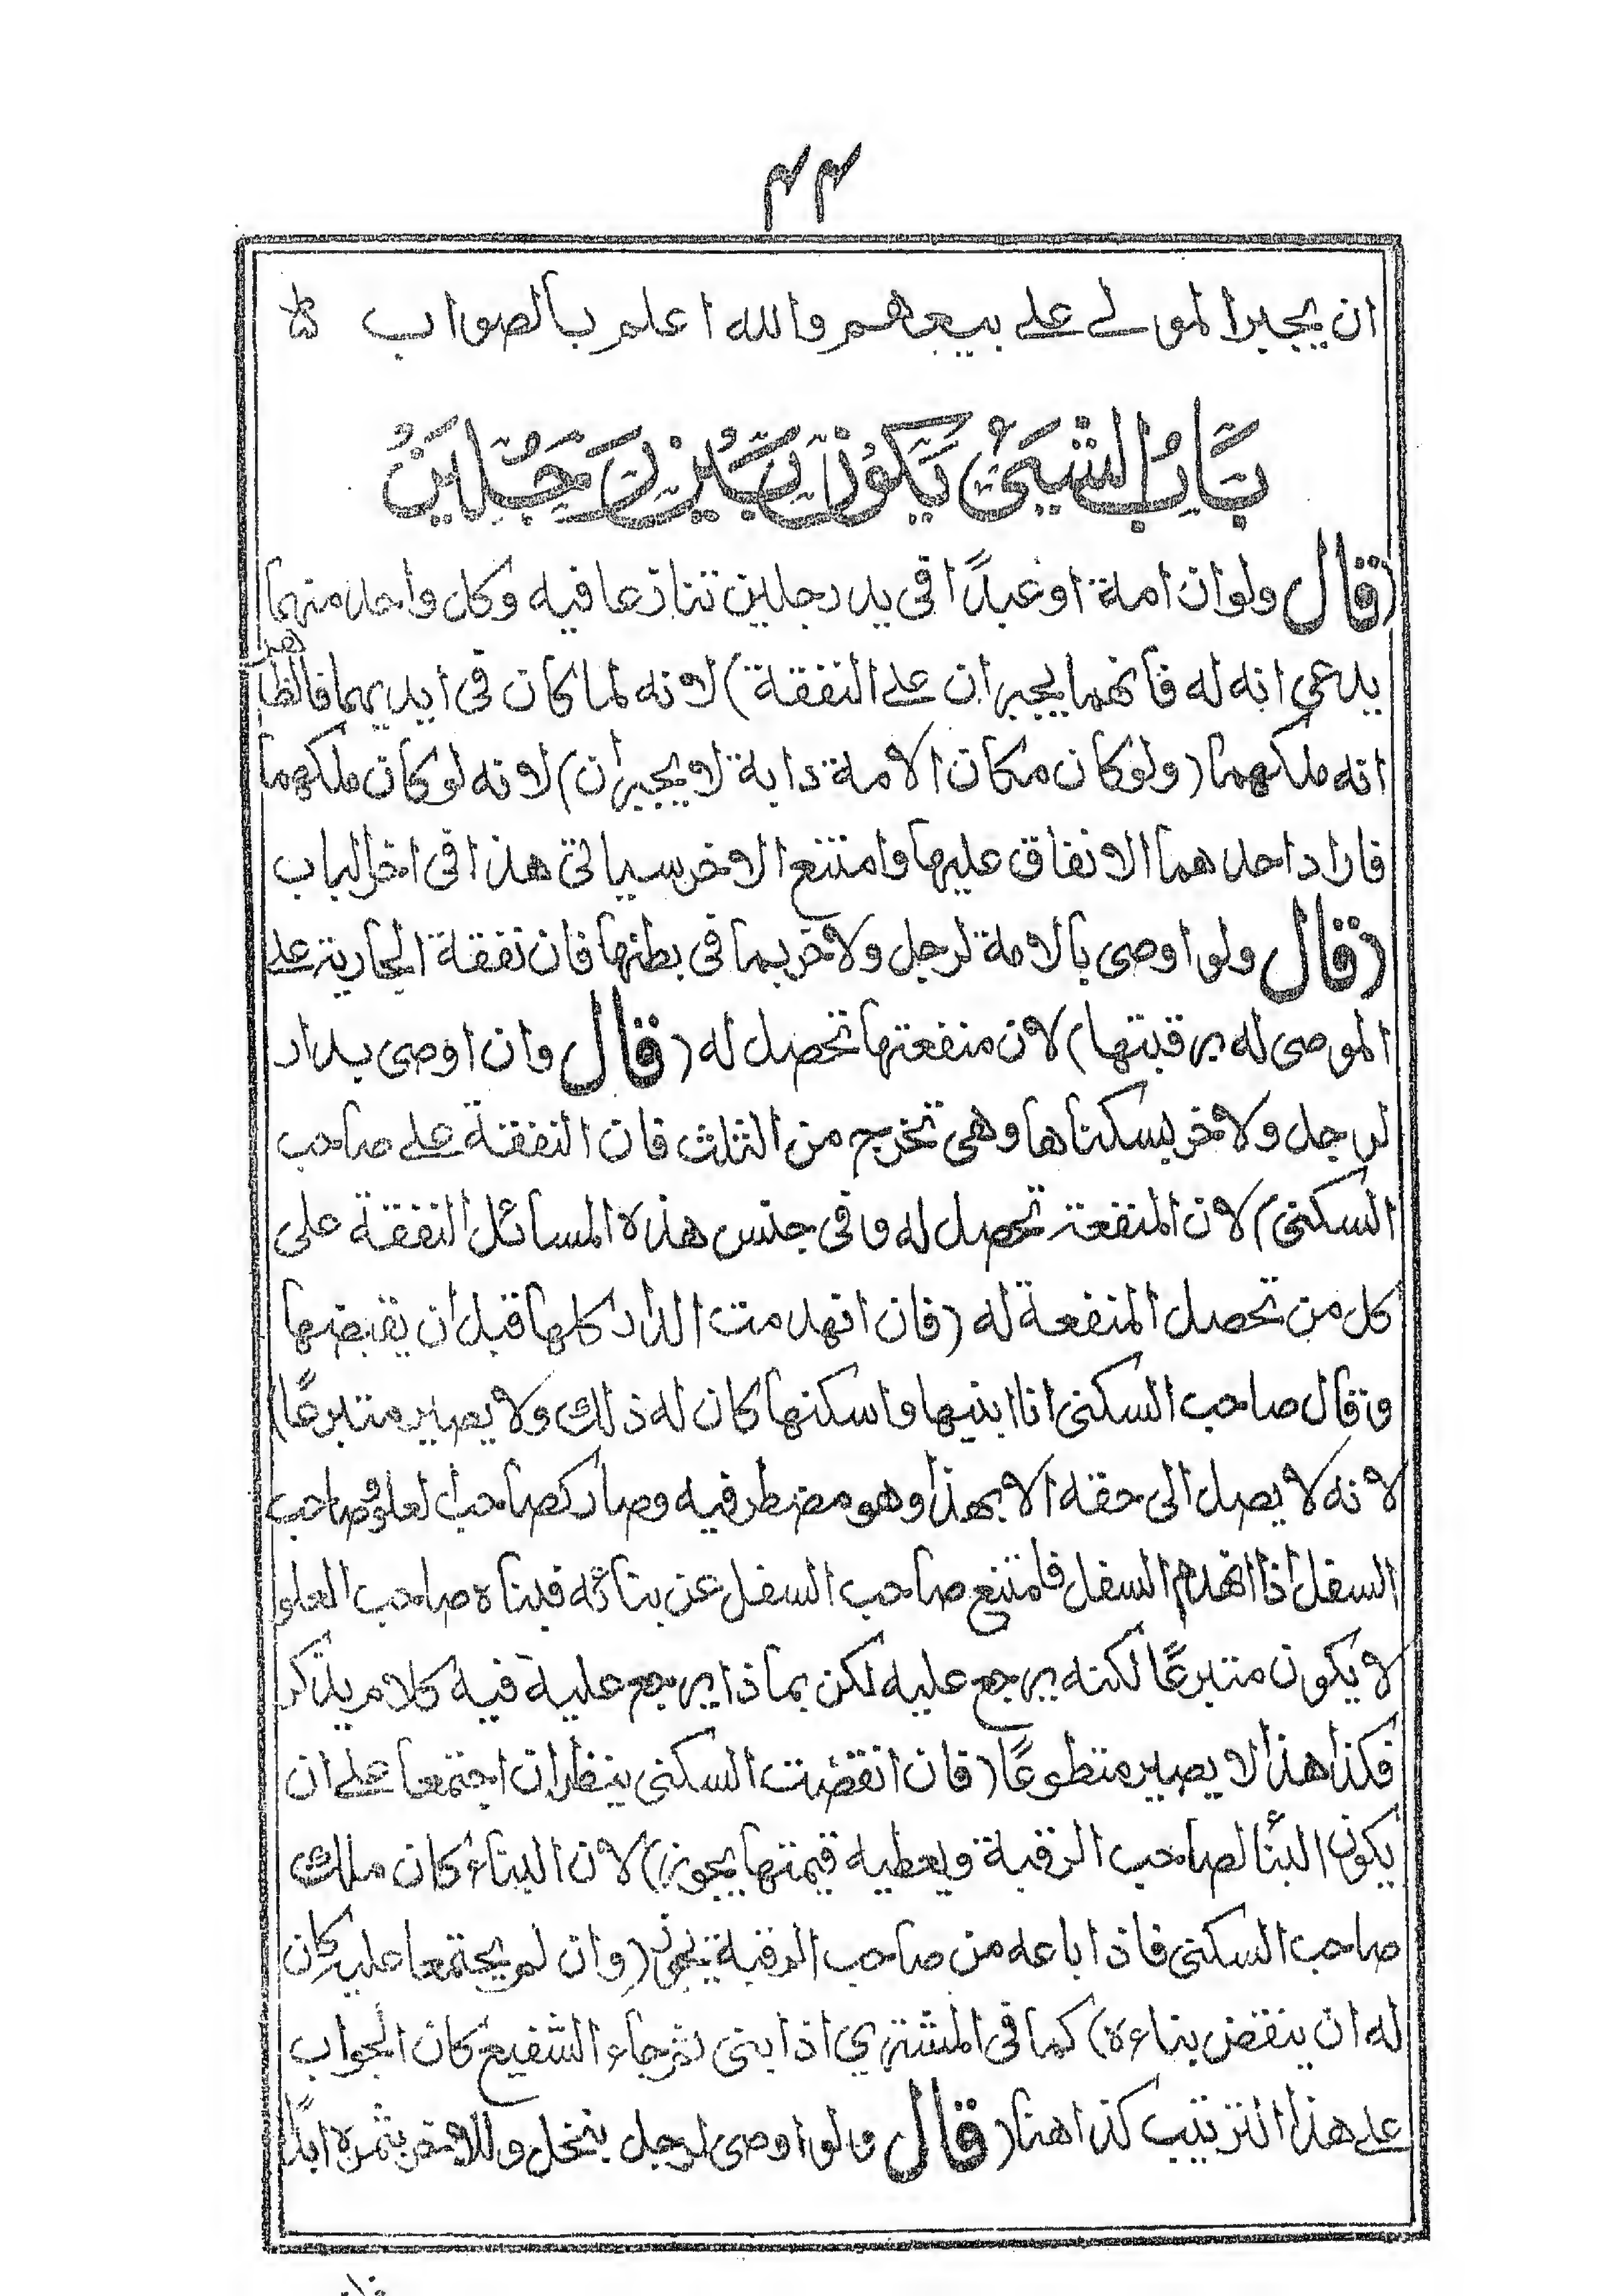 ٤٤
ان يجبر المولے علے بيعهم والله اعلم بالصواب
بَابُ الشَّيْئِ يَكُوْنُ بَيْنَ رَجُلَيْنِ
(قال ولو ان امة او عبدًا فى يد رجلين تنازعا فيه وكل واحد منهما
يدعى انه له فانهما يجبران علے النفقة) لانه لما كان فى ايديهما فالظاهر
انه ملكهما (ولو كان مكان الامة دابة لا يجبران) لانه لو كان ملكهما
فاراد احدهما الانفاق عليها وامتنع الاخر سياتى هذا فى اخر الباب
(قال ولو اوصى بالامة لرجل ولاخر بما فى بطنها فان نفقة الجارية علے
الموصى له برقبتها) لان منفعتها تحصل له (قال وان اوصى بدار
لرجل ولاخر بسكناها وهى تخرج من الثلث فان النفقة علے صاحب
السكنى) لان المنفعة تحصل له وفى جنس هذه المسائل النفقة على
كل من تحصل المنفعة له (فان انهدمت الدار كلها قبل ان يقبضها
وقال صاحب السكنى انا ابنيها واسكنها كان له ذلك ولا يصير متبرعًا)
لانه لا يصل الى حقه الا بهذا وهو مضطر فيه وصار كصاحب العلو وصاحب
السفل اذا انهدم السفل فامتنع صاحب السفل عن بنائه فبناه صاحب العلو
لا يكون متبرعًا لكنه يرجع عليه لكن بماذا يرجع عليه فيه كلام يذكر
فكذا هذا لا يصير متطوعًا (فان انقضت السكنى ينظر ان اجتمعا علے ان
يكون البنا لصاحب الرقبة ويعطيه قيمتها يجوز) لان البناء كان ملك
صاحب السكنى فاذا باعه من صاحب الرقبة يجوز (وان لم يجتمعا عليه كان
له ان ينقض بناءه) كما فى المشترى اذا بنى ثم جاء الشفيع كان الجواب
علے هذا الترتيب كذا هنا (قال ولو اوصى لرجل بنخل وللاخر بثمره ابدًا